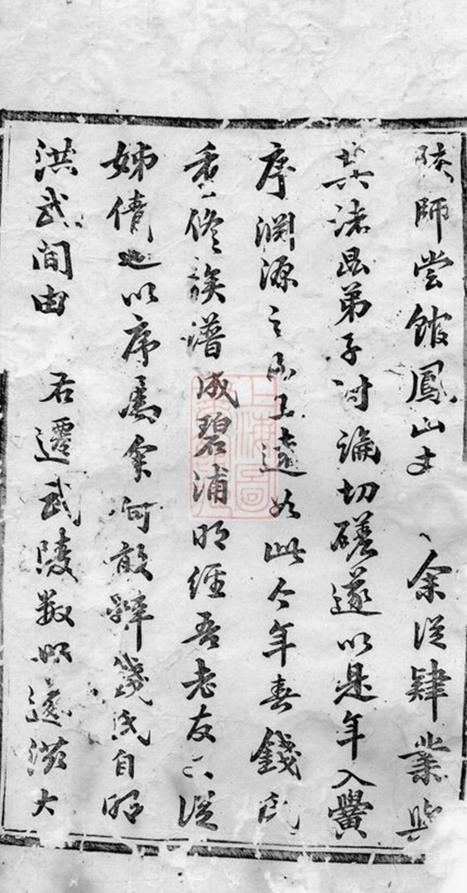 陵師嘗館鳳山丈 余從肄業與
其諸昆弟子討論切磋遂以是年入黌
序淵源之 上遠如此今年春錢氏
重修族譜成碧浦明經吾老友 從
姊倩也以序屬余何敢辭錢氏自明
洪武間由 君遷武陵數 遂滋大